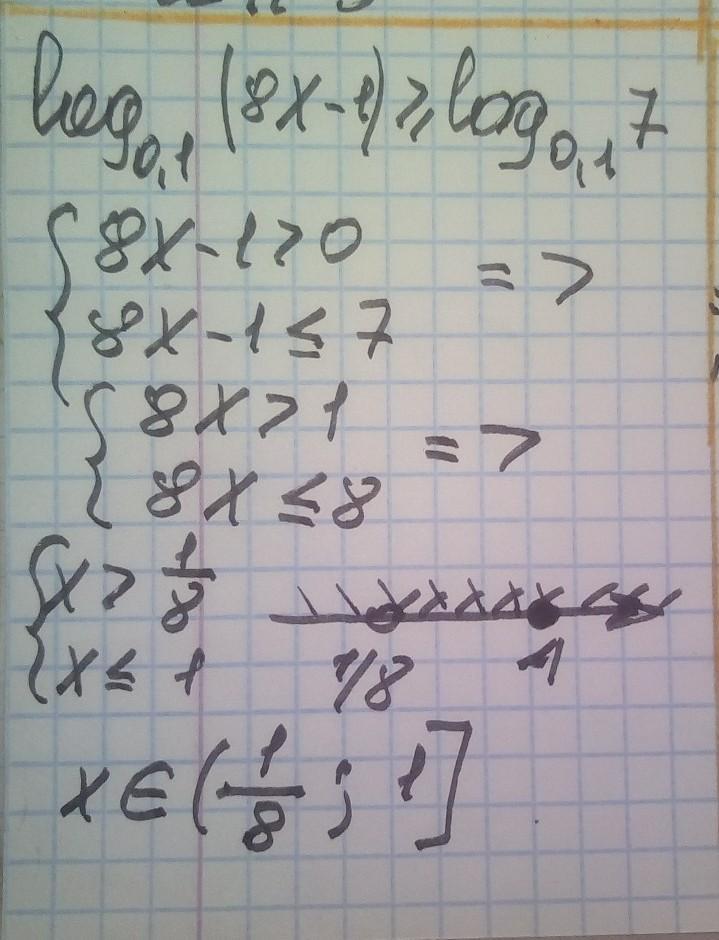 log₀,₁ (8x-1) ≥ log₀,₁ 7
{ 8x-1>0
=>
8x-1≤7
{ 8x>1
=>
8x≤8
{ x> 1/8
x≤ 1
1/8 1
x∈(1/8; 1]